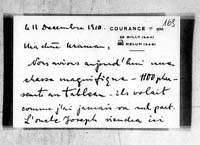 le 11 Decembre 1910. COURANCE 168
MILLY (S&O)
MELUN (S&M)
Ma chère Maman,
Nous avions aujourd'hui une
chasse magnifique - 1100
au tableau. ils volait
comme j'ai jamais vu nul part.
L'oncle Joseph viendra ici